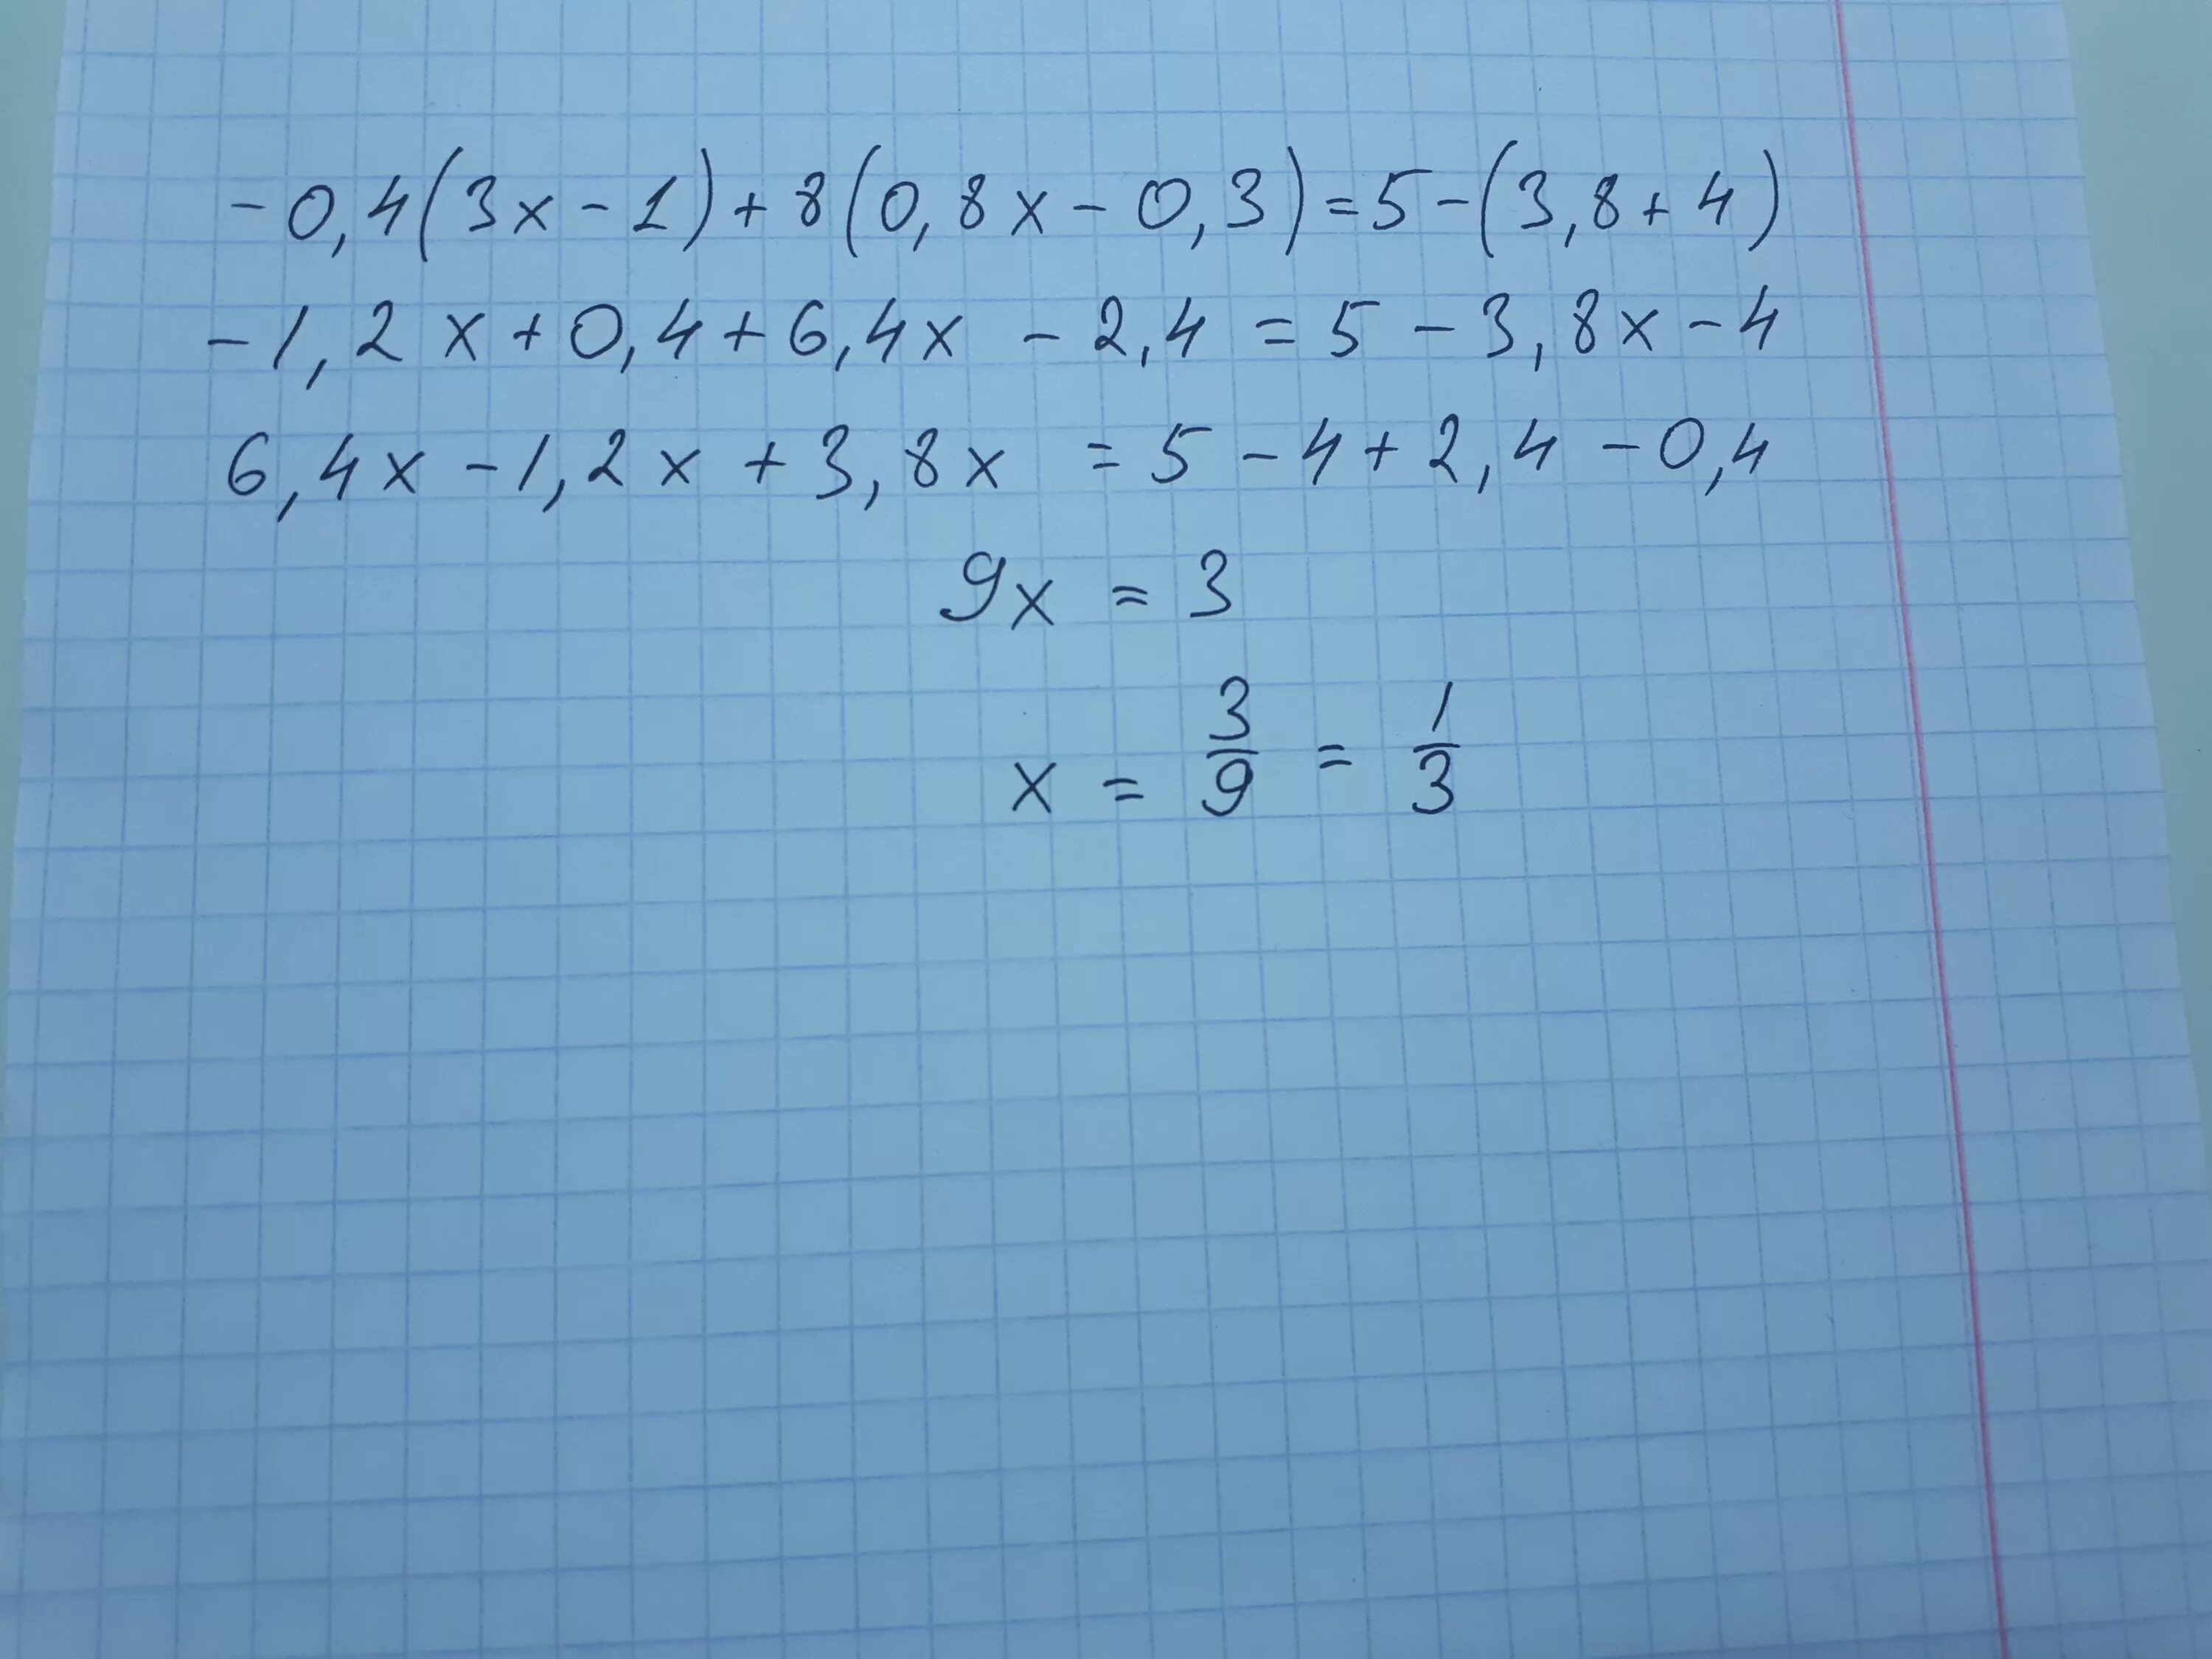 -0,4(3x-1)+8(0,8x-0,3)=5-(3,8+4)
-1,2x+0,4+6,4x-2,4=5-3,8x-4
6,4x-1,2x+3,8x=5-4+2,4-0,4
9x=3
x=3/9=1/3